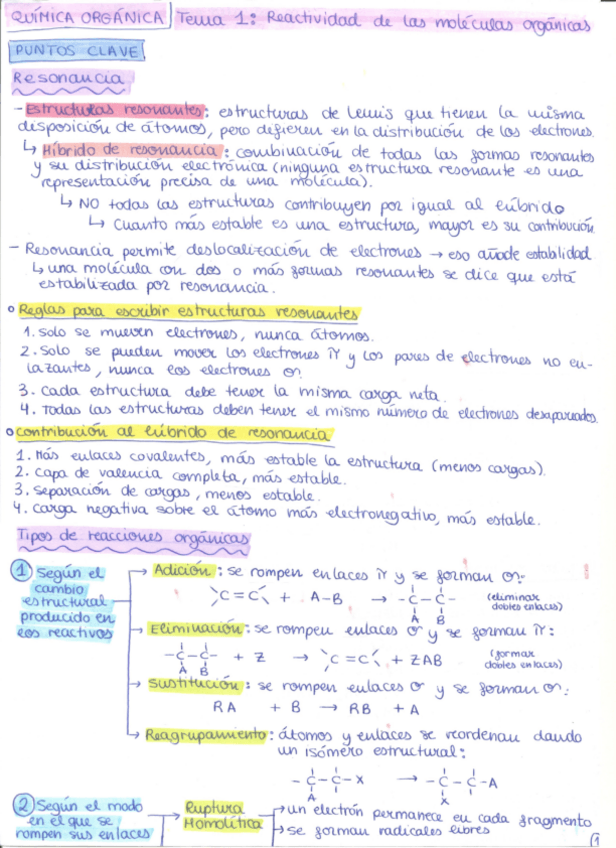 QUÍMICA ORGÁNICA Tema 1: Reactividad de las moléculas orgánicas
PUNTOS CLAVE
Resonancia
- Estructuras resonantes: estructuras de Lewis que tienen la misma
disposición de átomos, pero difieren en la distribución de los electrones.
↳ Híbrido de resonancia: combinación de todas las formas resonantes
y su distribución electrónica (ninguna estructura resonante es una
representación precisa de una molécula).
↳ NO todas las estructuras contribuyen por igual al híbrido
↳ Cuanto más estable es una estructura, mayor es su contribución.
- Resonancia permite deslocalización de electrones → eso añade estabilidad.
↳ una molécula con dos o más formas resonantes se dice que está
estabilizada por resonancia.
o Reglas para escribir estructuras resonantes
1. Solo se mueven electrones, nunca átomos.
2. Solo se pueden mover los electrones π y los pares de electrones no en-
lazantes, nunca los electrones σ.
3. Cada estructura debe tener la misma carga neta.
4. Todas las estructuras deben tener el mismo número de electrones desapareados.
o Contribución al híbrido de resonancia
1. Más enlaces covalentes, más estable la estructura (menos cargas).
2. Capa de valencia completa, más estable.
3. Separación de cargas, menos estable.
4. Carga negativa sobre el átomo más electronegativo, más estable.
Tipos de reacciones orgánicas
1 Según el
cambio
estructural
producido en
los reactivos
Adición: se rompen enlaces π y se forman σ:
C=C + A-B → -C-C-
A B
(eliminar
dobles enlaces)
Eliminación: se rompen enlaces σ y se forman π:
-C-C- + Z → C=C + ZAB
A B
(formar
dobles enlaces)
Sustitución: se rompen enlaces σ y se forman σ:
RA + B → RB + A
Reagrupamiento: átomos y enlaces se reordenan dando
un isómero estructural:
-C-C-X → -C-C-A
A X
2 Según el modo
en el que se
rompen sus enlaces
Ruptura
Homolítica
→ un electrón permanece en cada fragmento
→ se forman radicales libres
1